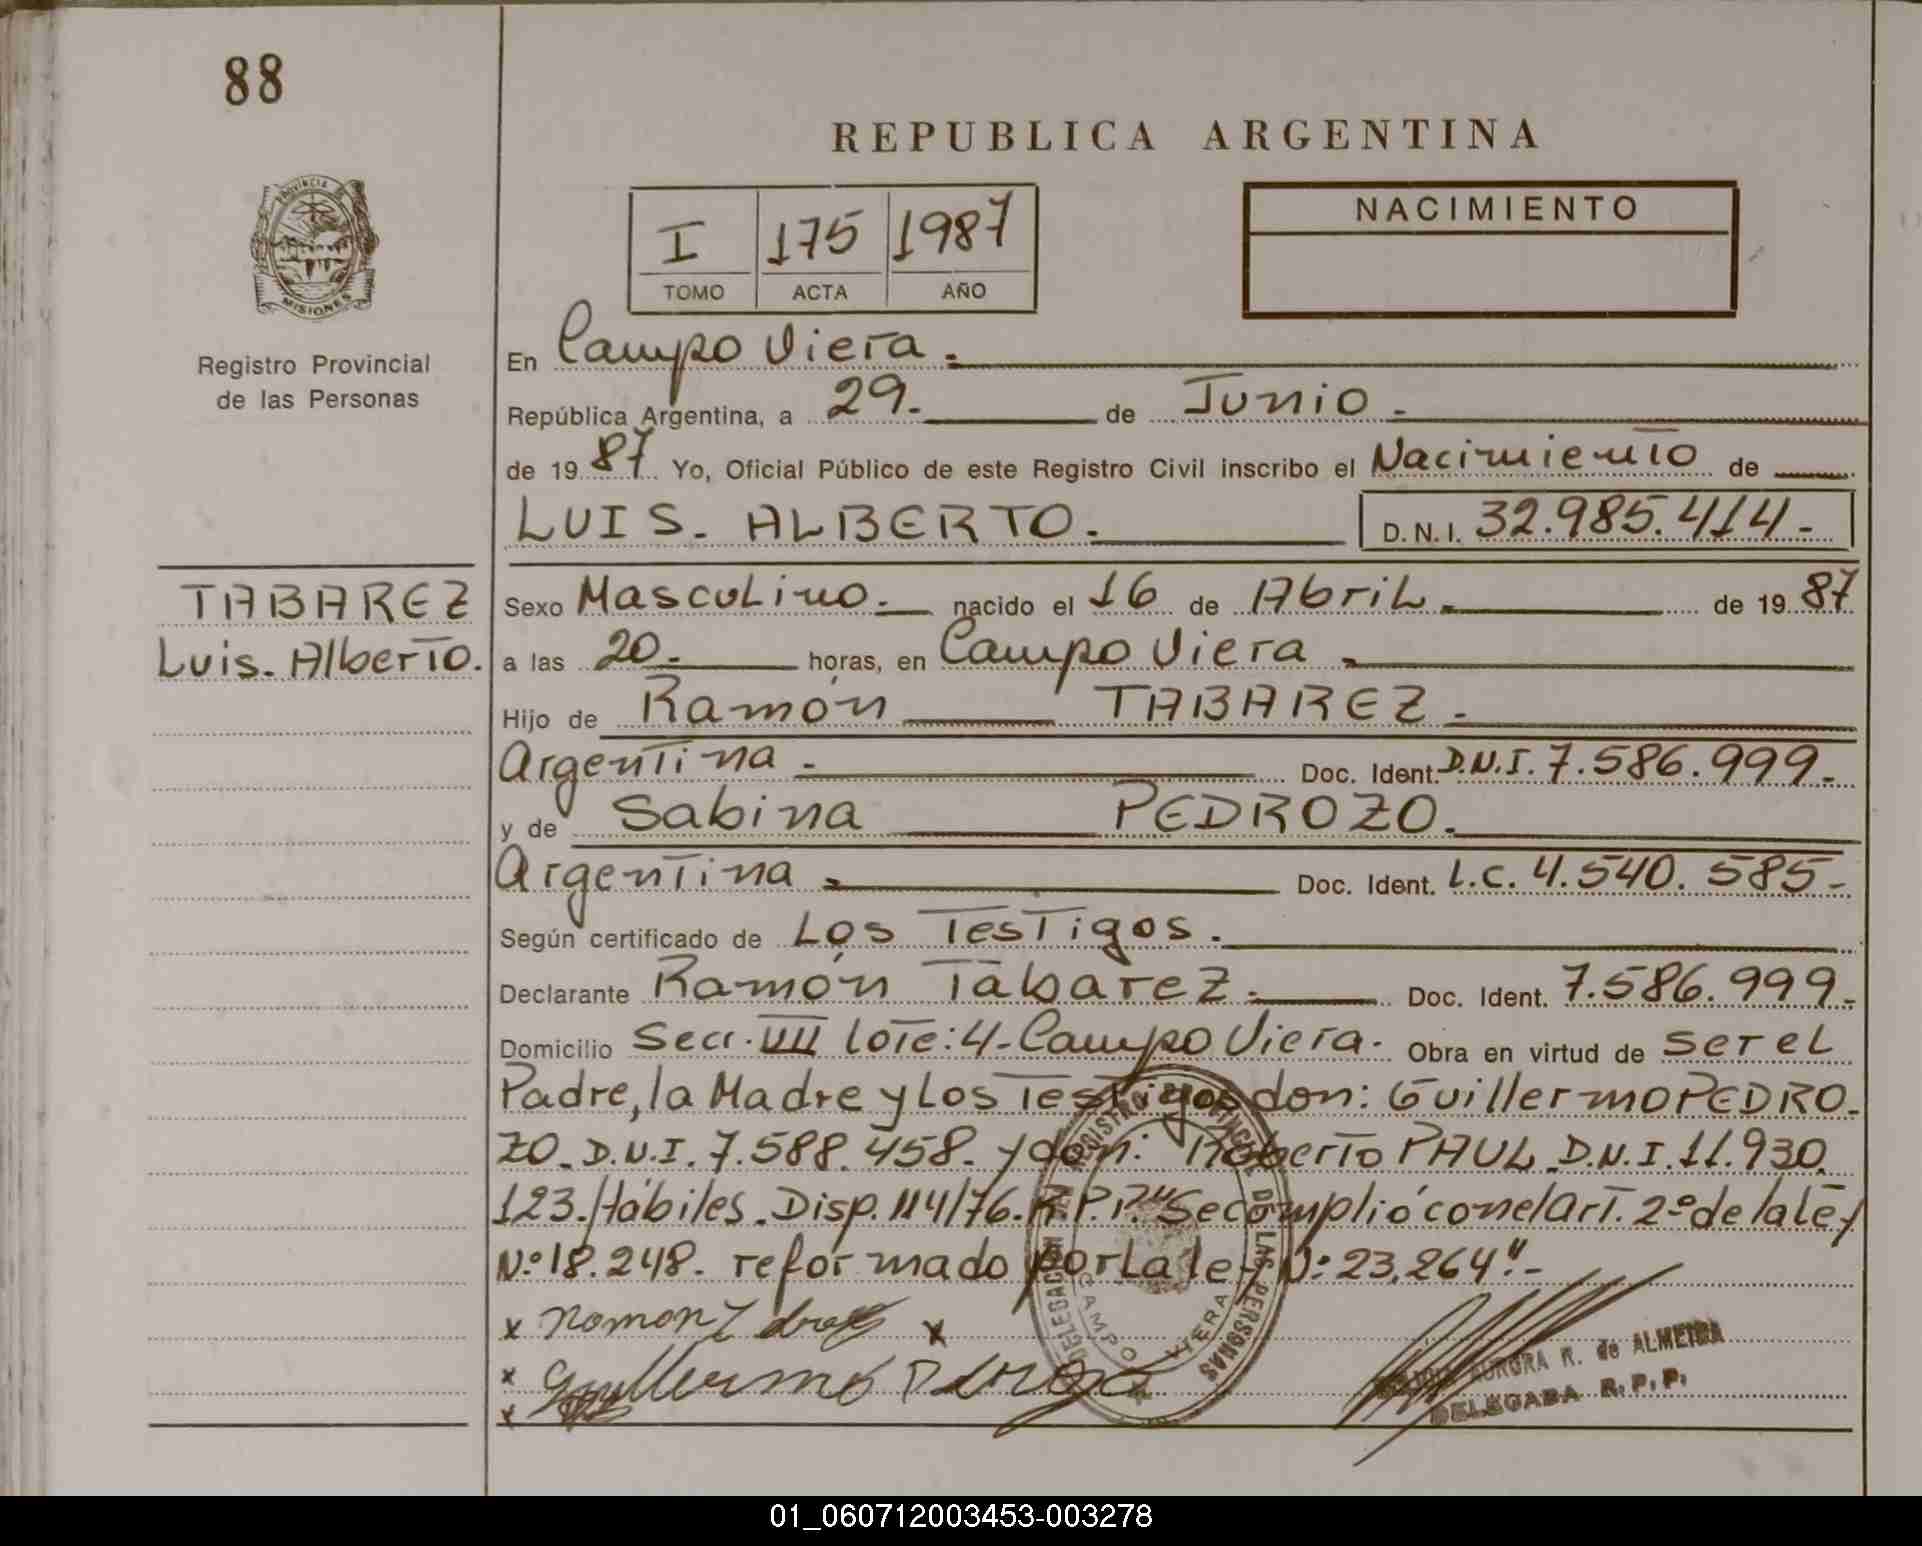 88
REPUBLICA ARGENTINA
PROVINCIA DE
MISIONES
Registro Provincial
de las Personas
I 175 1987
TOMO ACTA AÑO
NACIMIENTO
En Campo Viera.
República Argentina, a 29. de Junio.
de 1987 Yo, Oficial Público de este Registro Civil inscribo el Nacimiento de
LUIS. ALBERTO. D.N.I. 32.985.414-
TABAREZ
Luis. Alberto.
Sexo Masculino. nacido el 16 de Abril. de 1987
a las 20. horas, en Campo Viera
Hijo de Ramón TABAREZ.
Argentina. Doc. Ident. D.N.I. 7.586.999.
y de Sabina PEDROZO.
Argentina Doc. Ident. L.C. 4.540.585-
Según certificado de Los Testigos.
Declarante Ramón Tabarez. Doc. Ident. 7.586.999.
Domicilio Secc. VIII lote: 4- Campo Viera. Obra en virtud de ser el
Padre, la Madre y Los Testigos don: Guillermo PEDRO-
ZO. D.N.I. 7.588.458. y don: Roberto PAUL. D.N.I. 11.930.
123./Hábiles. Disp. 114/76. R.P.P. "Se cumplió con el Art. 2º de la Ley
Nº 18.248. reformado por La ley Nº 23.264".-
x Ramon x
x Guillermo
x
REGISTRO PROVINCIAL DE LAS PERSONAS
DELEGACION
CAMPO VIERA
AURORA R. de ALMEIDA
DELEGADA R.P.P.
01_060712003453-003278